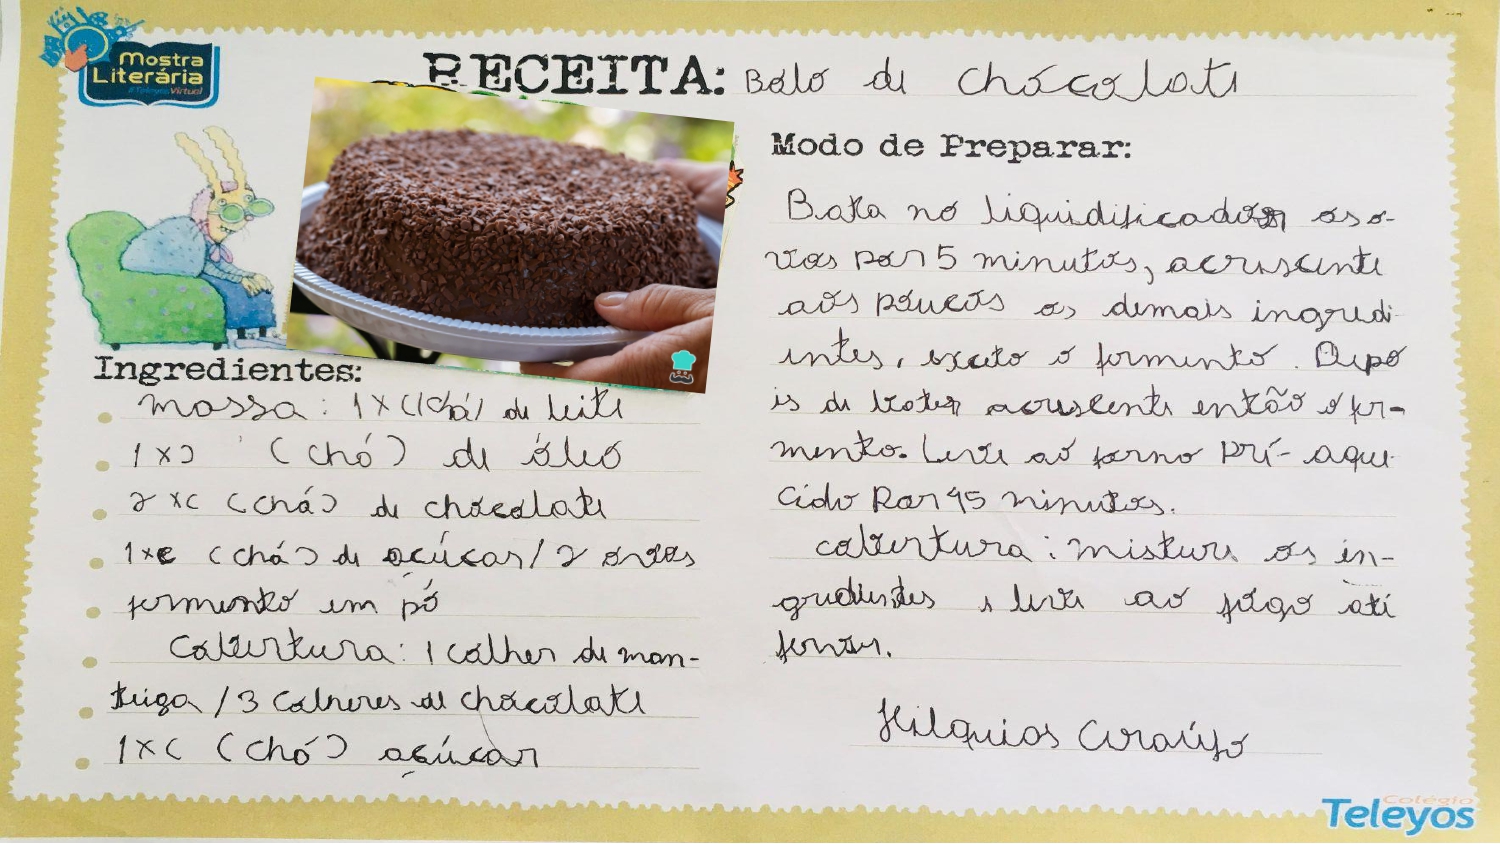 Mostra
Literária
#TeleyosVirtual
RECEITA: Bolo de chocolate
Ingredientes:
massa: 1 xc (chá) de leite
1 xc (chá) de óleo
2 xc (chá) de chocolate
1 xc (chá) de açúcar / 2 ovos
fermento em pó
Cobertura: 1 colher de man-
teiga / 3 colheres de chocolate
1 xc (chá) açúcar
Modo de Preparar:
Bata no liquidificador os o-
vos por 5 minutos, acrescente
aos poucos os demais ingredi-
entes, exceto o fermento. Depo
is de bater acrescente então o fer-
mento. Leve ao forno pré-aque-
cido por 45 minutos.
cobertura: misture os in-
gredientes e leve ao fogo até
ferver.
Hilquias Araújo
Colégio
Teleyos